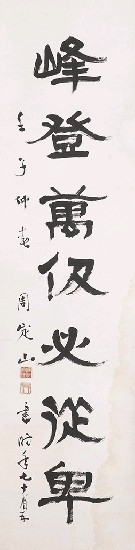 峰登萬仞必從卑
壬子仲春
周定山
書時年七十有五